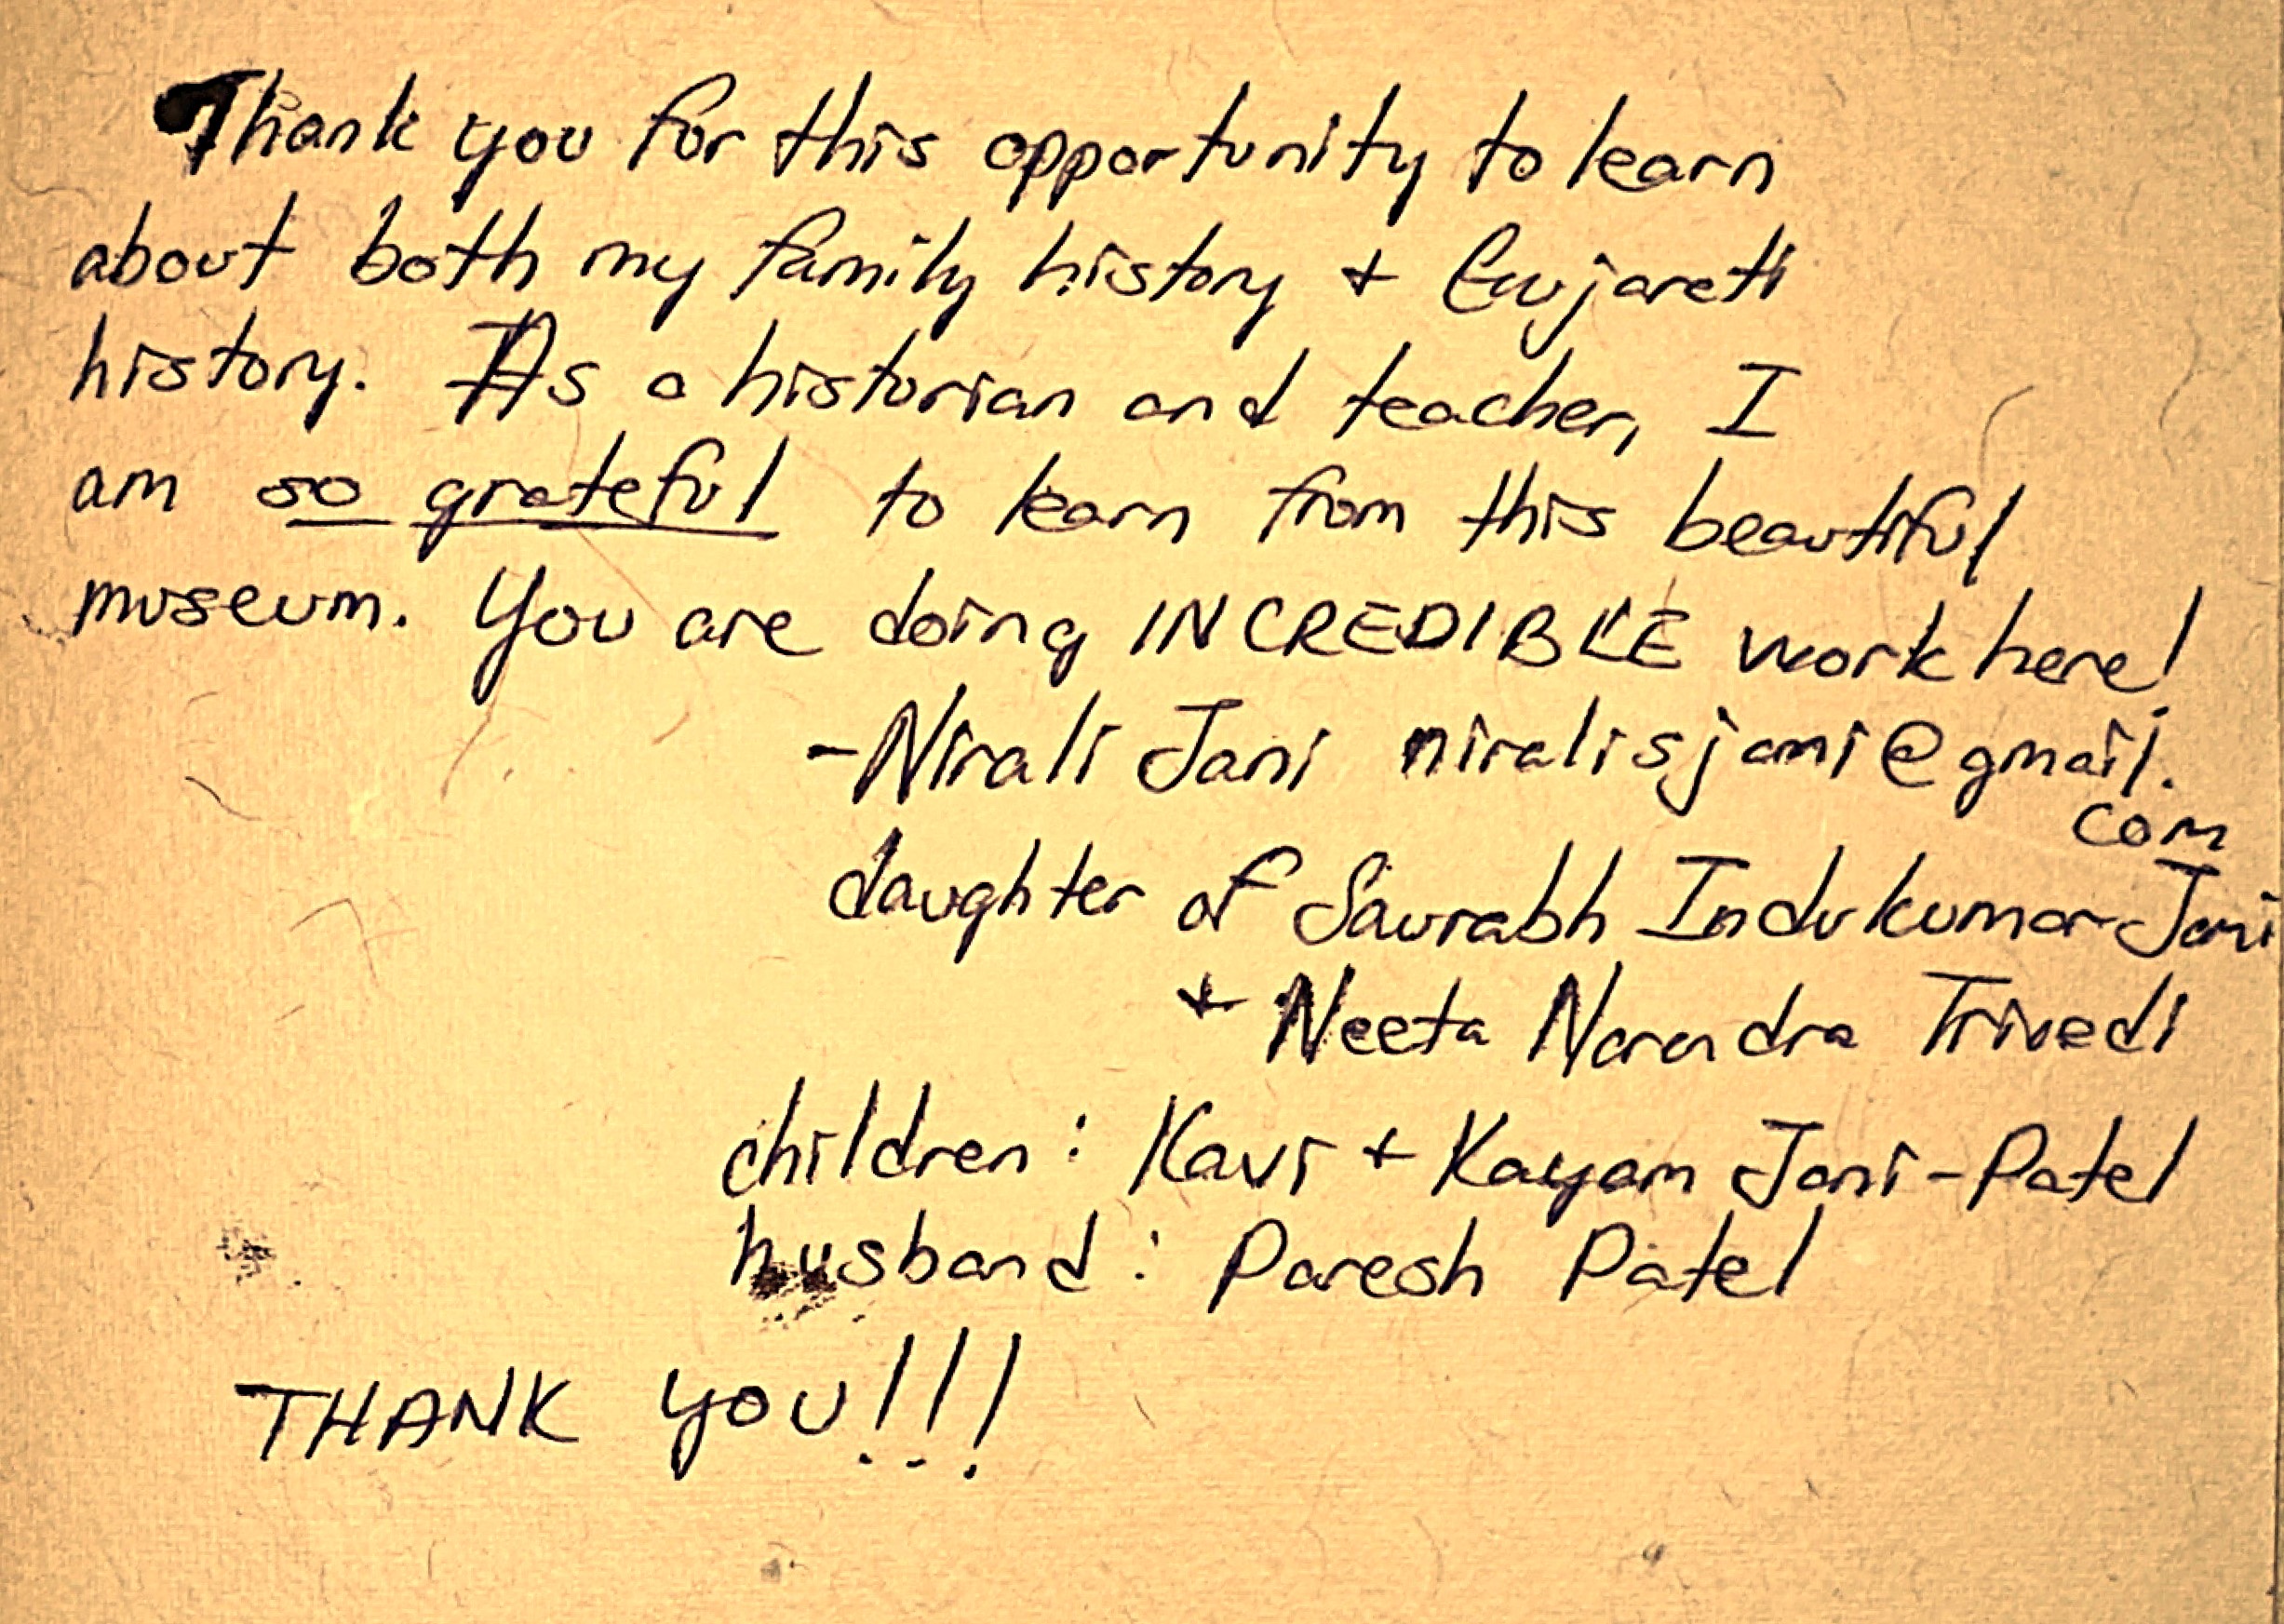 Thank you for this opportunity to learn
about both my family history + Gujarati
history. As a historian and teacher, I
am so grateful to learn from this beautiful
museum. You are doing INCREDIBLE work here!
-Nirali Jani niralisjani@gmail.
com
daughter of Saurabh Indukumar Jani
+ Neeta Narendra Trivedi
children: Kavi + Kayam Jani-Patel
husband: Paresh Patel
THANK YOU!!!